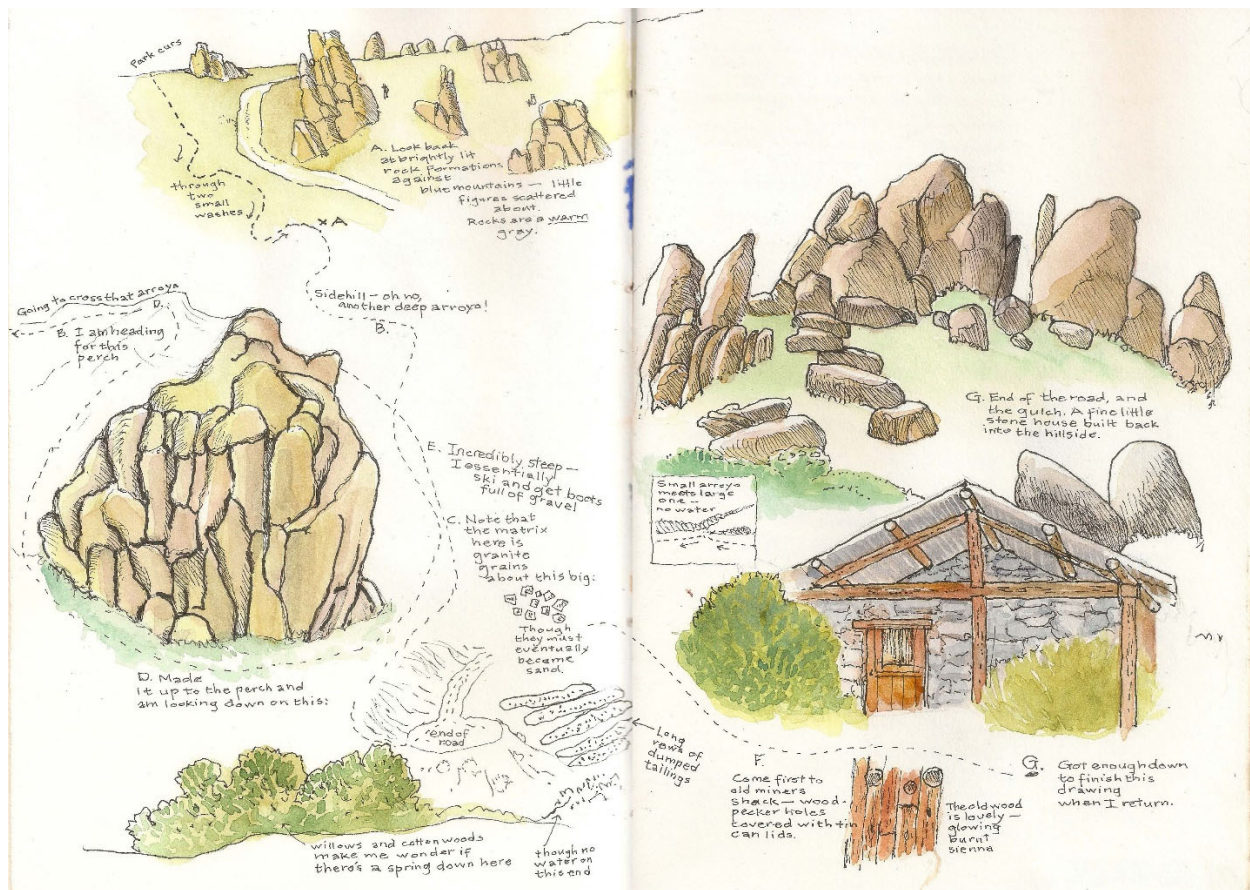 Park curs
through
two
small
washes
A. Look back
at brightly lit
rock formations
against
blue mountains — little
figures scattered
about.
Rocks are a warm
gray.
xA
Going to cross that arroyo
D.
B. I am heading
for this
perch
Sidehill — oh no,
another deep arroyo!
B.
E. Incredibly steep —
I essentially
ski and get boots
full of gravel
C. Note that
the matrix
here is
granite
grains
about this big:
Though
they must
eventually
become
sand.
D. Made
it up to the perch and
am looking down on this:
end of
road
Long
rows of
dumped
tailings
willows and cottonwoods
make me wonder if
there's a spring down here
though no
water on
this end
G. End of the road, and
the gulch. A fine little
stone house built back
into the hillside.
Small arroyo
meets large
one —
no water
F.
Come first to
old miners
shack — wood-
pecker holes
covered with tin
can lids.
The old wood
is lovely —
glowing
burnt
sienna
G. Got enough down
to finish this
drawing
when I return.